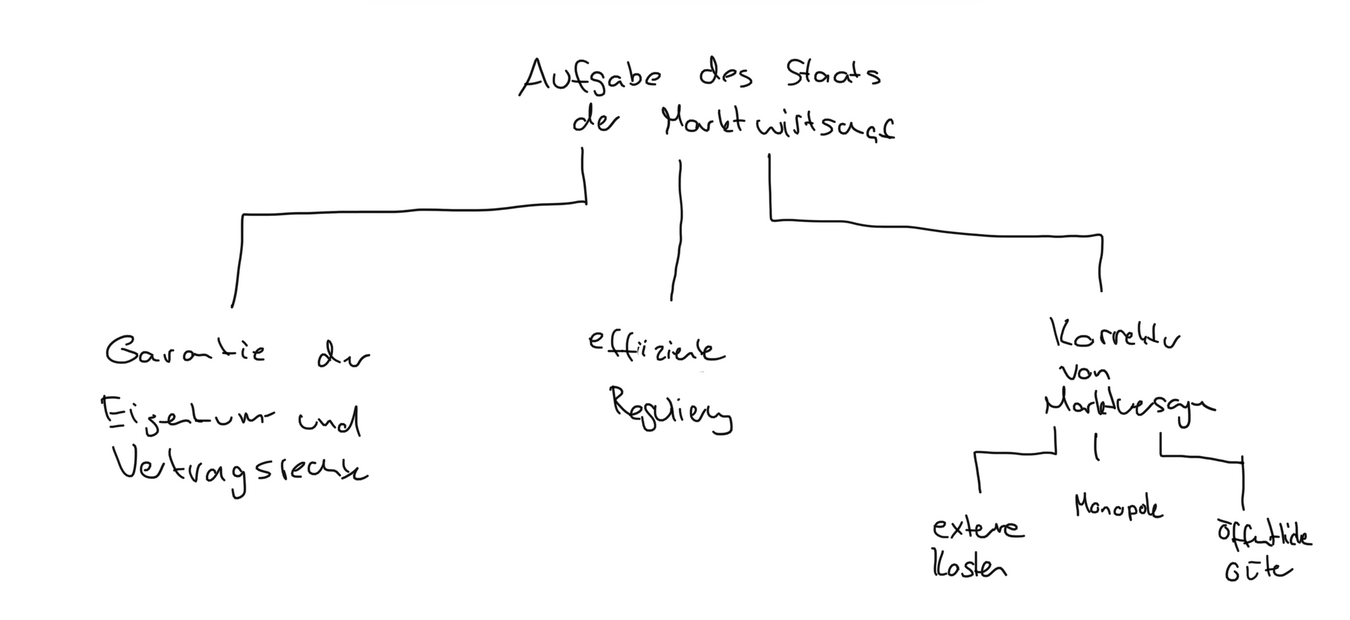 Aufgabe des Staats
der Marktwirtschaf
Garantie der
Eigentums und
Vertragsrechte
effiziente
Regulierung
Korrektur
von
Marktversagen
externe
Kosten
Monopole
öffentliche
Güter